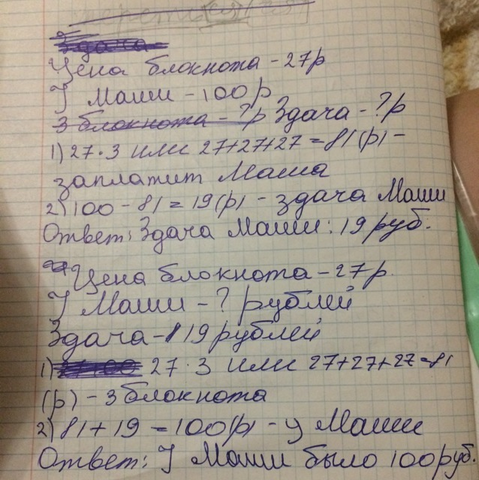 Цена блокнота - 27р
У Маши - 100 р
3 блокнота - ?р Здача - ?р
1) 27·3 или 27+27+27=81(р) -
заплатит Маша
2) 100 - 81 = 19(р) - здача Маши
Ответ: Здача Маши: 19 руб.
Цена блокнота - 27р.
У Маши - ? рублей
Здача - 19 рублей
1) 27·3 или 27+27+27=81
(р) - 3 блокнота
2) 81+19 = 100(р) - у Маши
Ответ: У Маши было 100 руб.